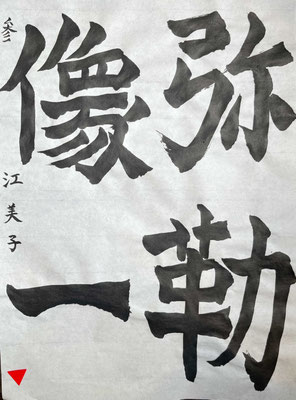 弥勒
像一
参 江美子